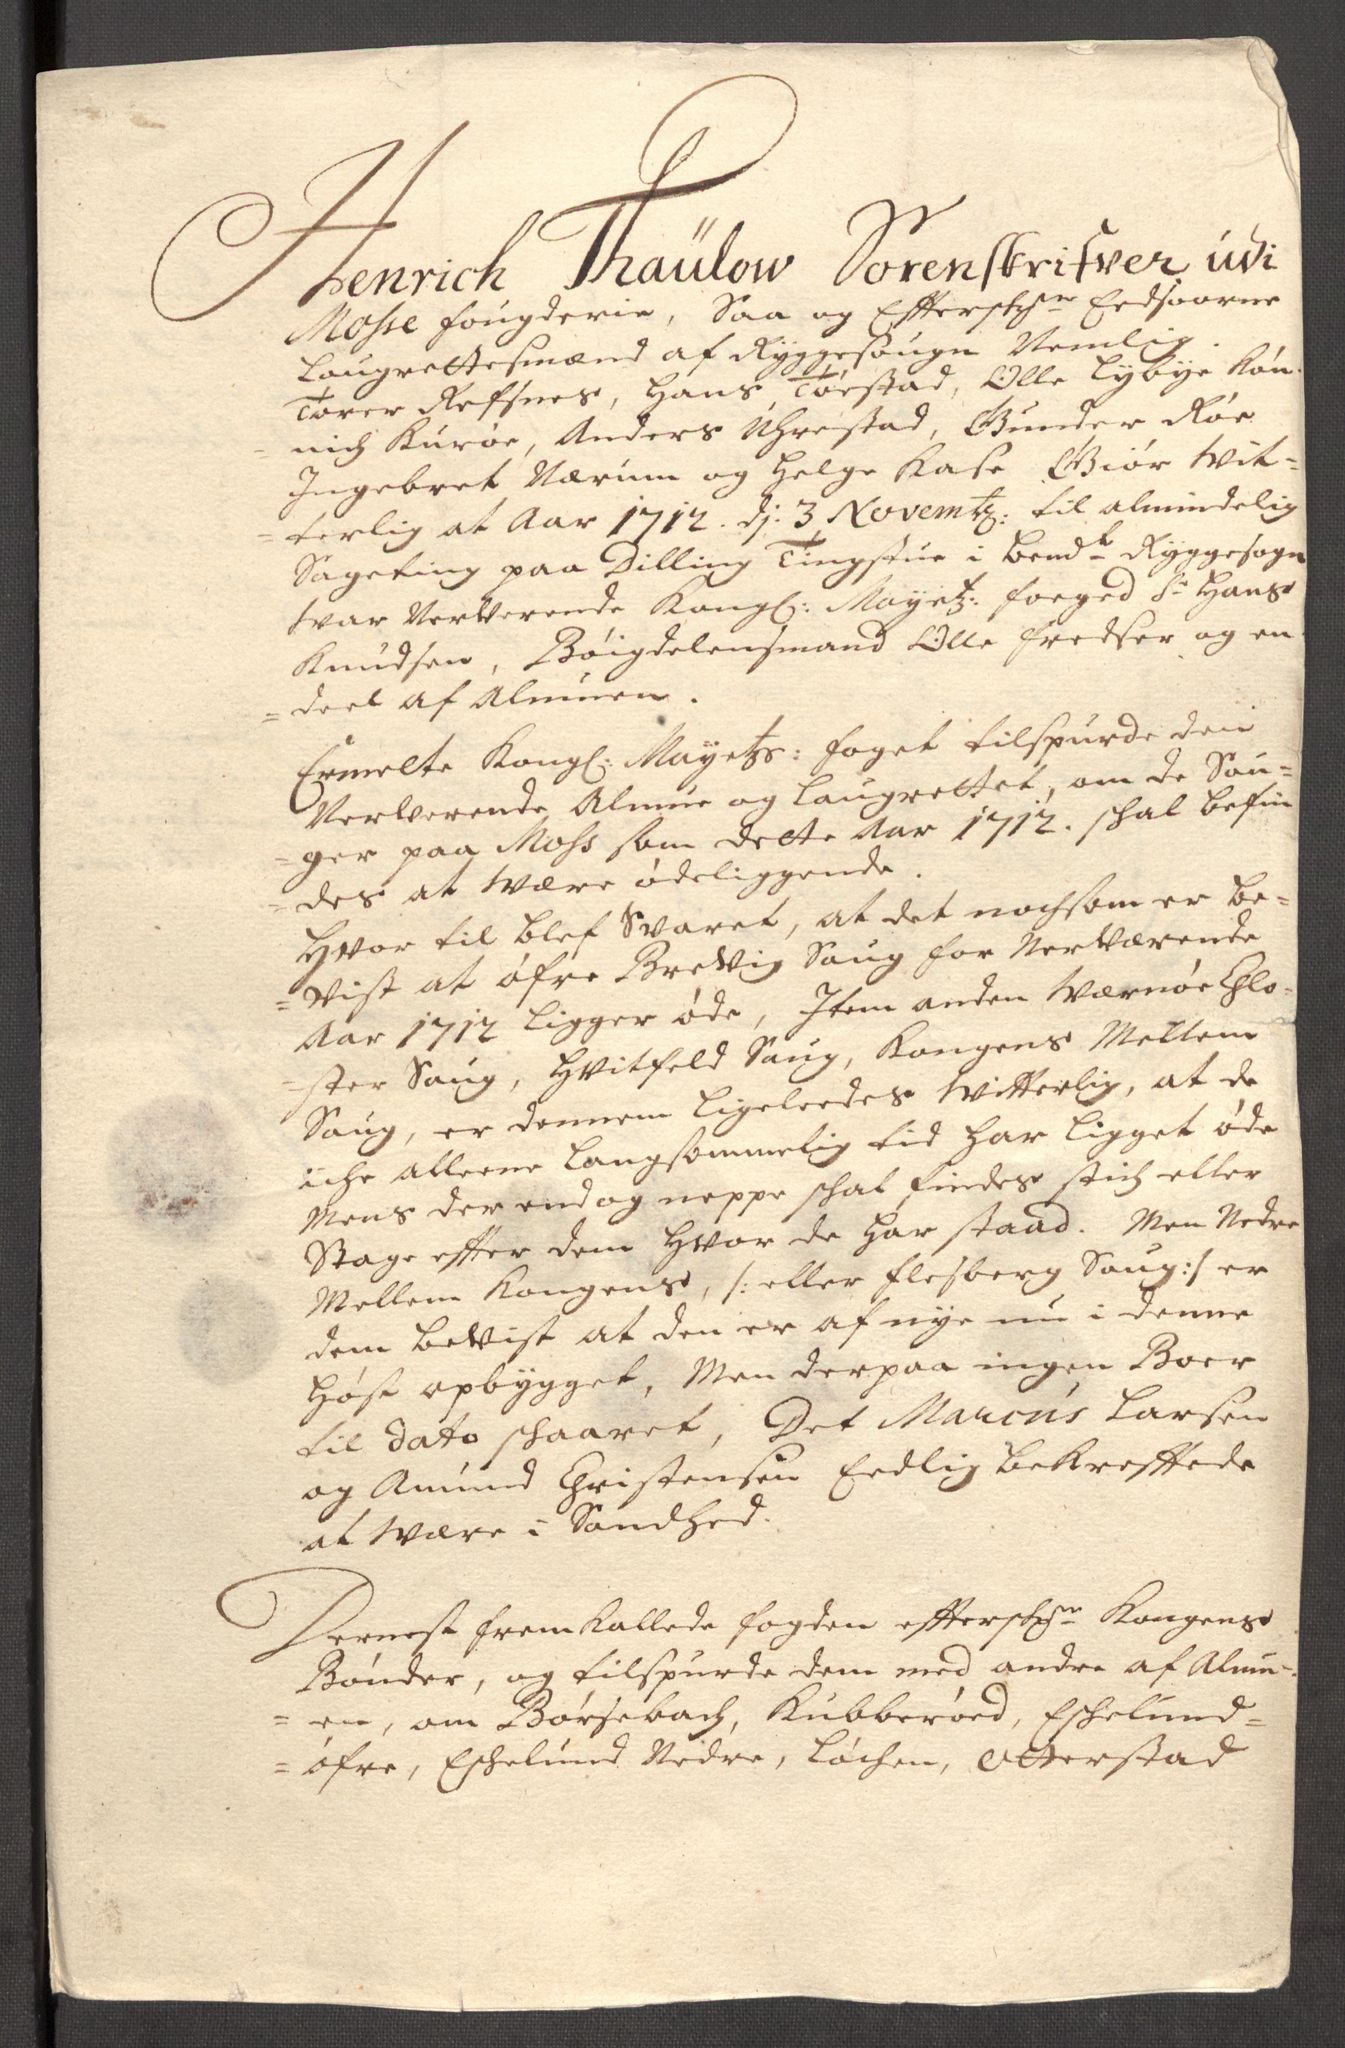 Henrich Thaülow Sorenskrifver udi
Mosse fougderie, Saa og Effterschrn Eedsoorne
Laugrettesmænd af Ryggesougn Nemlig.
Torer Refsnes, Hans Tøestad, Olle Lybye Køn-
=nich Kurøe, Anders Uhrestad, Gunder Røe
Ingebret Nærum og Helge Kase Giør Wit=
=terlig at Aar 1712. dj: 3 Novembr: til almindelig
Sageting paa Dilling Tingstue i bemdte Ryggesogn
War Nerverende Kongl: Mayetz: foeged Sr Hans
Knudsen, Bøigdelensmand Olle Fredser og en
=deel af Almuen.
Ermelte Kongl: Mayetzs: foget tilspurde den
Nerverende Almue og Laugrettet, om de Sau=
=ger paa Moss som dette Aar 1712. schal befin
=des at Være ødeliggende.
Hvor til blef Svaret, at det nochsom er be=
=vist at øfre Brevig Saug for Nerværende
Aar 1712 ligger øde, Item anden Værnøe Clo=
=ster Saug, Hvitfeld Saug, Kongens Mellem
Saug, er dennem ligeleedes Witterlig, at de
iche alleene langsommelig tid har ligget øde
Mens der endog neppe schal findes stich eller
Stage effter dem Hvor de har staad. Men Nedre
Mellem Kongens, /: eller Flesberg Saug:/ er
dem bevist at den er af nye nu i denne
Høst opbygget, Men derpaa ingen Boer
til dato schaaret, Det Marcus Larsen
og Amund Christensen Eedlig bekreffede
at være i Sandhed.
Dernest frem kallede fogden effterschrn Kongens
Bønder, og tilspurde dem med andre af Almu-
=en, om Børsebach, Kubberøed, Eschelund=
=øfre, Eschelund Nedre, Løchen, Otterstad